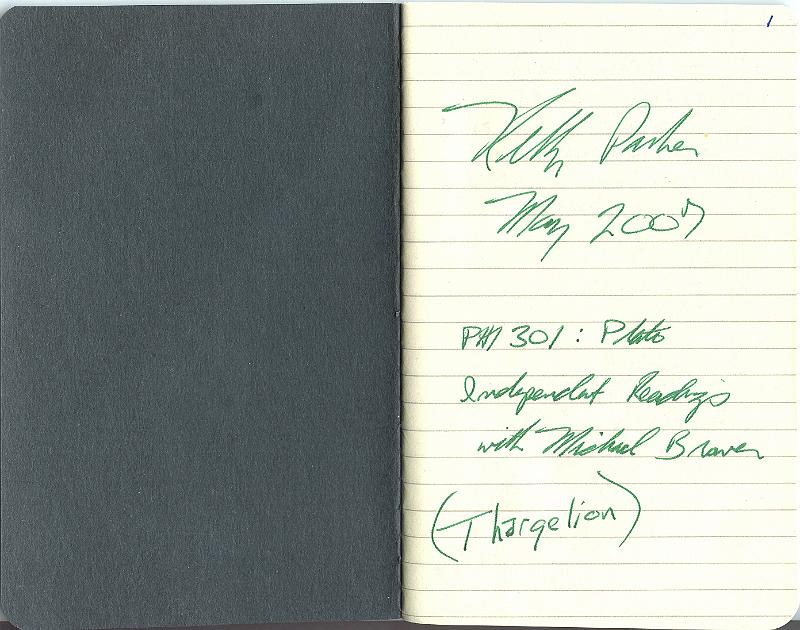 1
Kelly Parker
May 2007
PHI 301: Plato
Independent Readings
with Michael Braver
(Thargelion)